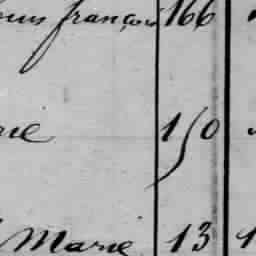 françois 166
150
Marie 13